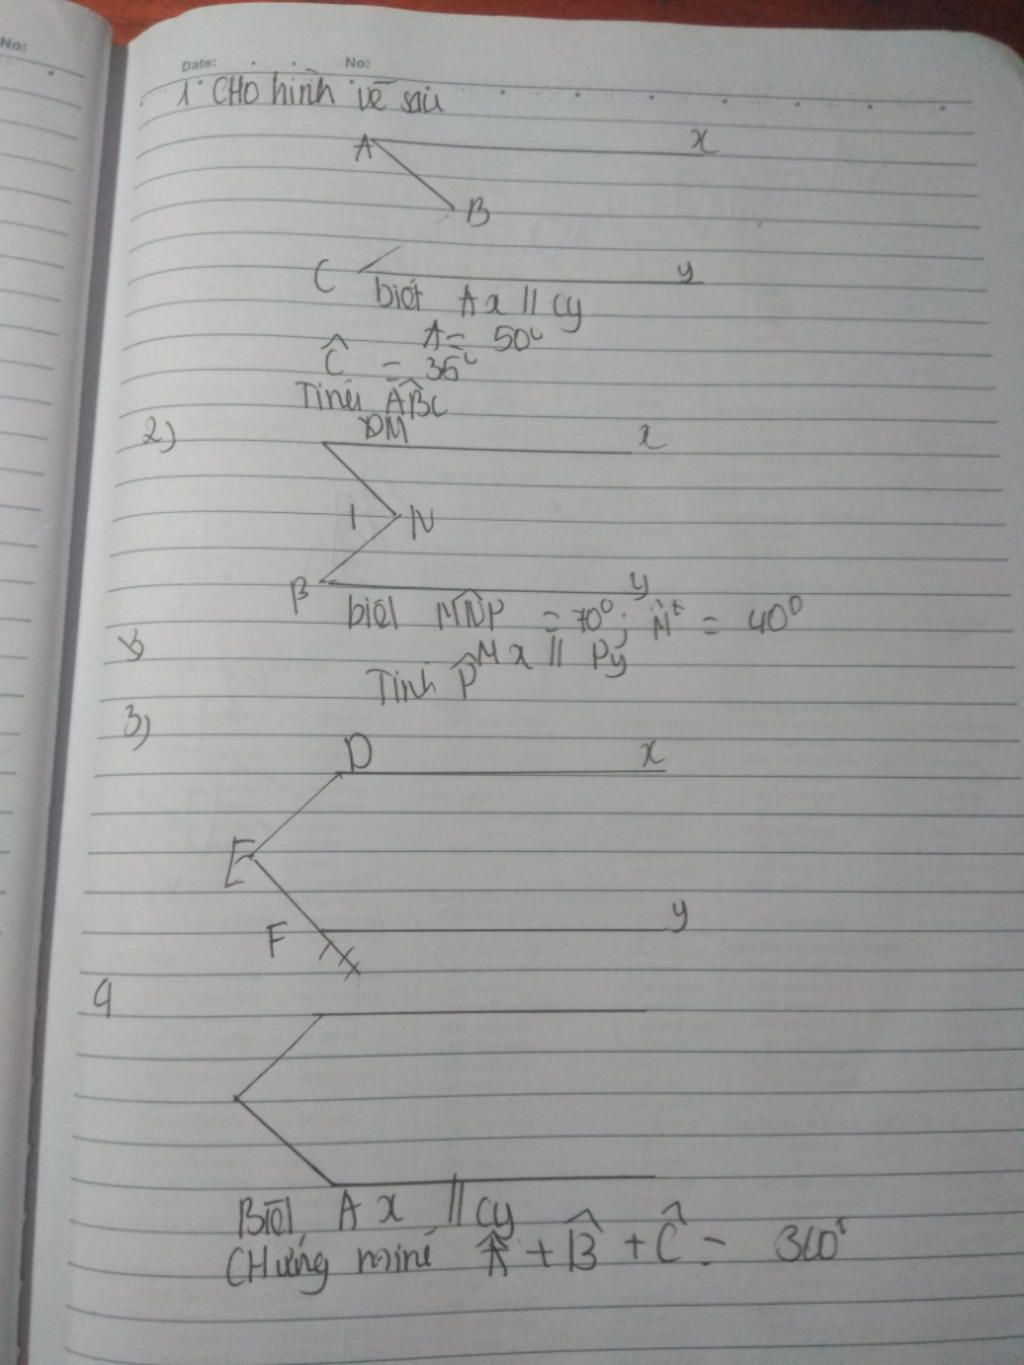 No:
Date: No:
1. CHO hình vẽ sau
A x
B
C y
biết Ax // Cy
A = 50°
Ĉ = 36°
Tính ABC
2) M x
N
P y
biết MNP = 70°; M = 40°
Mx // Py
Tính P̂
3)
D x
E
F y
4
Biết Ax // Cy
CHứng minh Â + B̂ + Ĉ = 360°